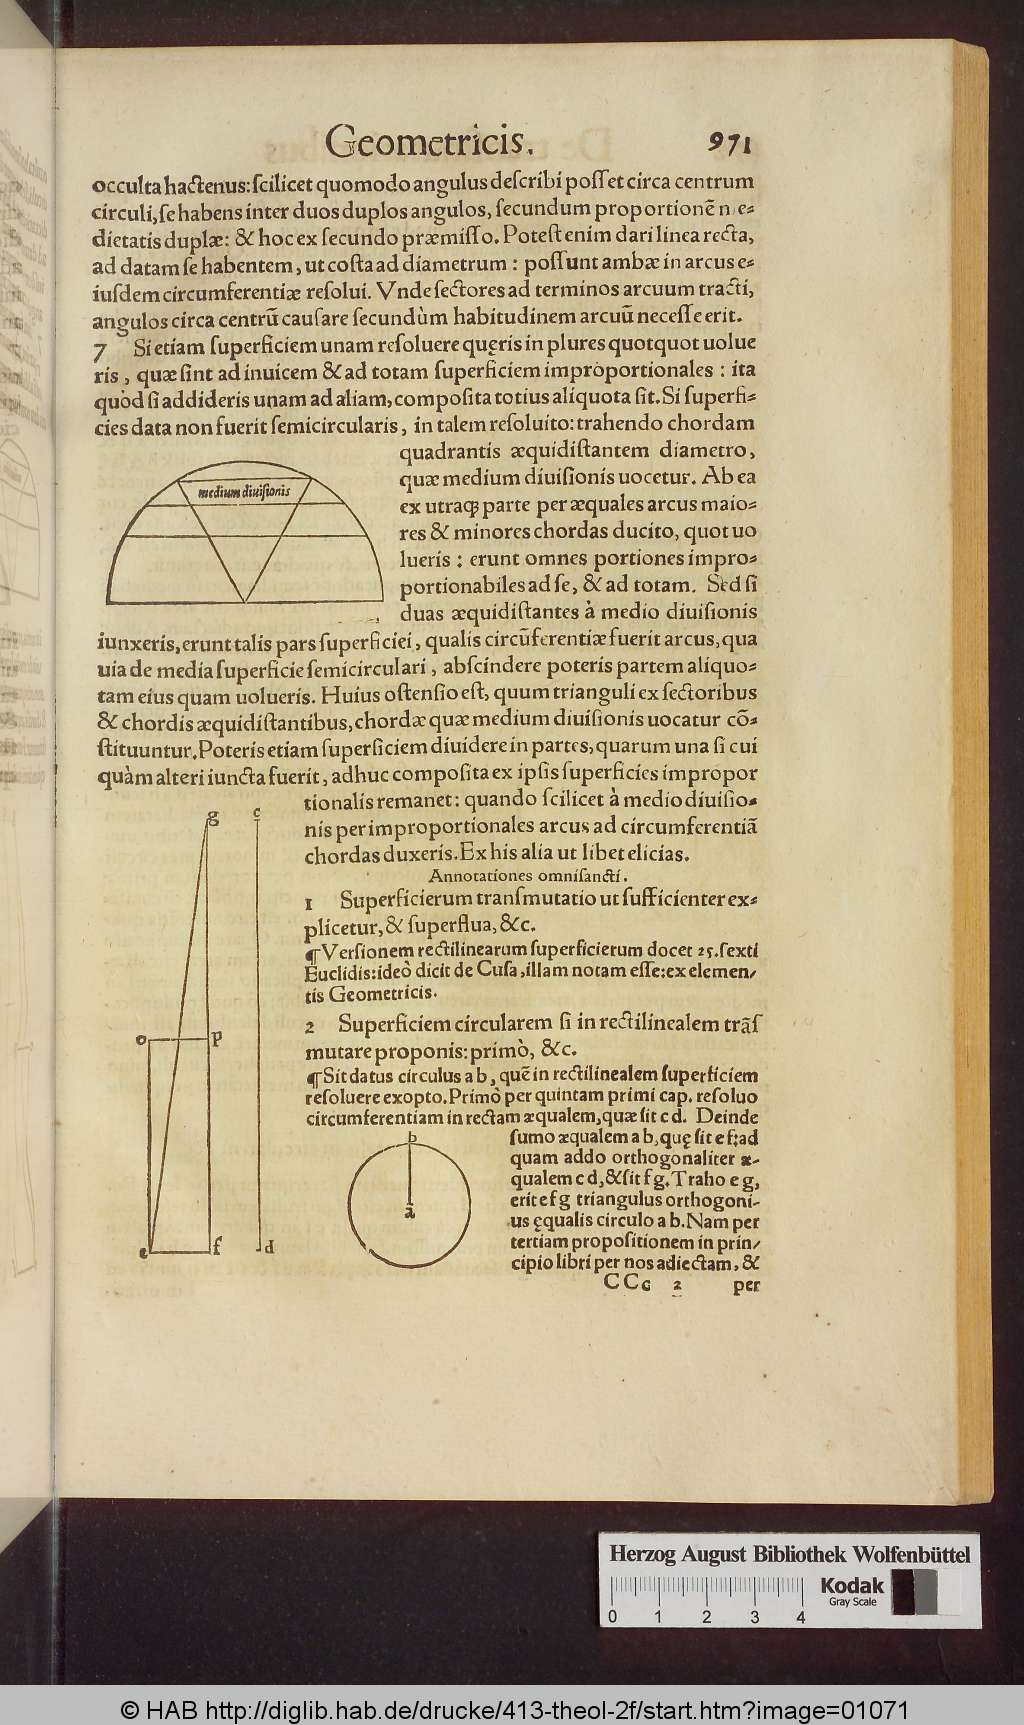 Geometricis. 971
occulta hactenus: ſcilicet quomodo angulus deſcribi poſſet circa centrum
circuli, ſe habens inter duos duplos angulos, ſecundum proportionẽ me⸗
dietatis duplæ: & hoc ex ſecundo præmiſſo. Poteſt enim dari linea recta,
ad datam ſe habentem, ut coſta ad diametrum: poſſunt ambæ in arcus e⸗
iuſdem circumferentiæ reſolui. Vnde ſectores ad terminos arcuum tracti,
angulos circa centrũ cauſare ſecundùm habitudinem arcuũ neceſſe erit.
7 Si etiam ſuperficiem unam reſoluere quęris in plures quotquot uolue
ris, quæ ſint ad inuicem & ad totam ſuperficiem improportionales: ita
quòd ſi addideris unam ad aliam, compoſita totius aliquota ſit. Si ſuperfi⸗
cies data non fuerit ſemicircularis, in talem reſoluito: trahendo chordam
quadrantis æquidiſtantem diametro,
quæ medium diuiſionis uocetur. Ab ea
ex utraq; parte per æquales arcus maio⸗
res & minores chordas ducito, quot uo
lueris: erunt omnes portiones impro⸗
portionabiles ad ſe, & ad totam. Sed ſi
duas æquidiſtantes à medio diuiſionis
medium diuiſionis
iunxeris, erunt talis pars ſuperficiei, qualis circũferentiæ fuerit arcus, qua
uia de media ſuperficie ſemicirculari, abſcindere poteris partem aliquo⸗
tam eius quam uolueris. Huius oſtenſio eſt, quum trianguli ex ſectoribus
& chordis æquidiſtantibus, chordæ quæ medium diuiſionis uocatur cõ⸗
ſtituuntur. Poteris etiam ſuperficiem diuidere in partes, quarum una ſi cui
quàm alteri iuncta fuerit, adhuc compoſita ex ipſis ſuperficies impropor
tionalis remanet: quando ſcilicet à medio diuiſio⸗
nis per improportionales arcus ad circumferentiã
chordas duxeris. Ex his alia ut libet elicias.
Annotationes omniſancti.
1 Superficierum tranſmutatio ut ſufficienter ex⸗
plicetur, & ſuperflua, &c.
¶ Verſionem rectilinearum ſuperficierum docet 25. ſexti
Euclidis: ideò dicit de Cuſa, illam notam eſſe: ex elemen⸗
tis Geometricis.
2 Superficiem circularem ſi in rectilinealem trãſ
mutare proponis: primò, &c.
¶ Sit datus circulus a b, quẽ in rectilinealem ſuperficiem
reſoluere exopto. Primò per quintam primi cap. reſoluo
circumferentiam in rectam æqualem, quæ ſit c d. Deinde
ſumo æqualem a b, quę ſit e f: ad
quam addo orthogonaliter æ-
qualem c d, & ſit f g. Traho e g,
erit e f g triangulus orthogoni-
us ęqualis circulo a b. Nam per
tertiam propoſitionem in prin⸗
cipio libri per nos adiectam, &
g c
o p
e f d
b
a
CCc 2 per
Herzog August Bibliothek Wolfenbüttel
0 1 2 3 4
Kodak
Gray Scale
© HAB http://diglib.hab.de/drucke/413-theol-2f/start.htm?image=01071